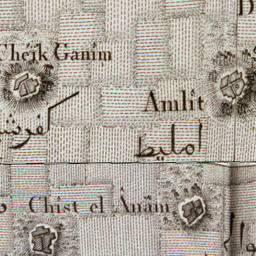 Cheïk Ganim
Amlît
كفرشـ
امليط
Chist el Ânâm